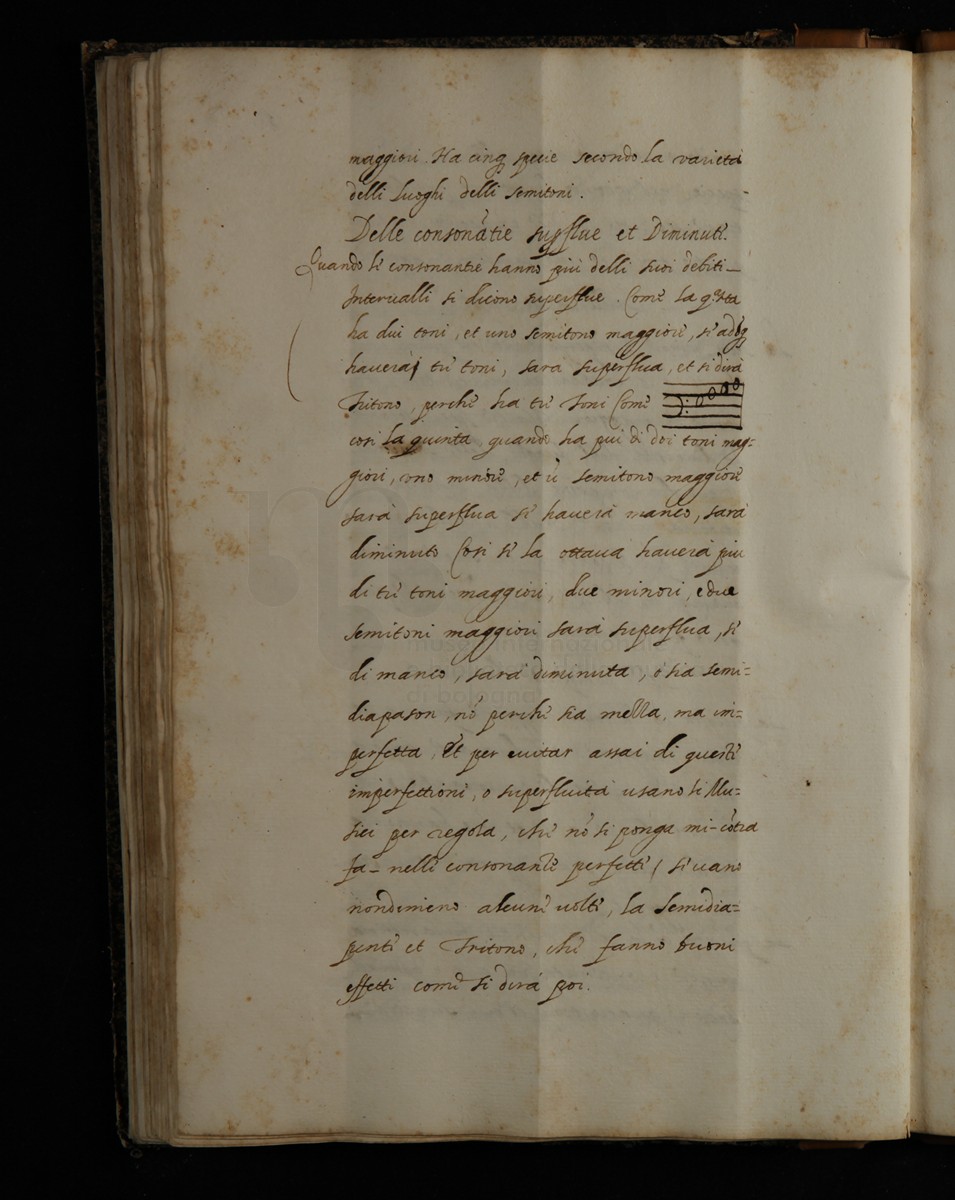 maggiori. Ha cinq specie secondo la varietà
delli luoghi delli semitoni.
Delle consonãtie supflue et Diminute.
Quando le consonantie hanno più delli suoi debiti
Intervalli si dicono superflue. Come la qrta
ha dui toni, et uno semitono maggiore, se adõq
haverà tre toni, sarà superflua, et si dirà
Tritono, perche ha tre Toni Come
cosi la quinta quando ha piu di doi toni mag=
giori, uno minore, et ũ semitono maggiore
sarà superflua se haverà manco, sarà
diminuto Cosi se la ottava haverà piu
di tre toni maggiori, due minori, e due
semitoni maggiori sarà superflua, se
di manco, sarà diminuta, ò sia semi=
diapason, nõ perche sia mella, ma im=
perfetta. Et per evitar assai di queste
imperfettioni, o superfluità usano li Mu=
sici per regola, che nõ si ponga mi-cõtra
fa- nelle consonanze perfette, si usano
nondimeno alcune volte, la semidia=
pente et Tritono, che fanno buoni
effetti come si dirà poi.